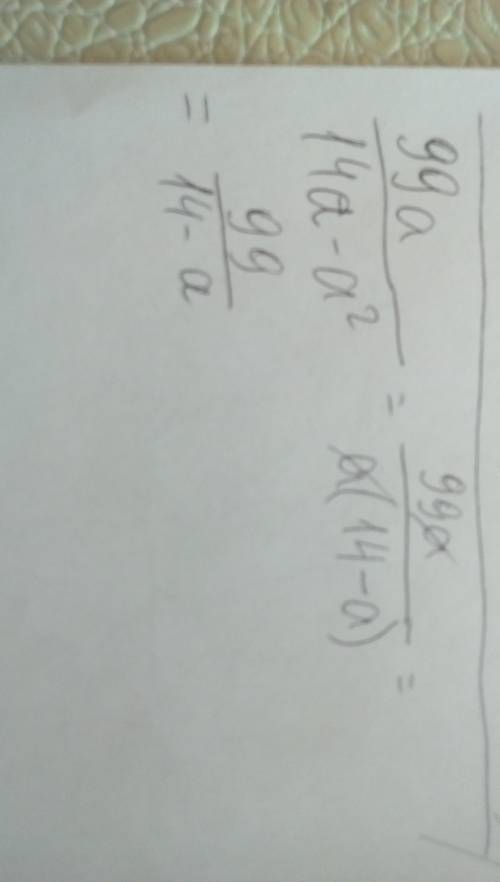 99a/14a-a² = 99a/a(14-a) =
= 99/14-a